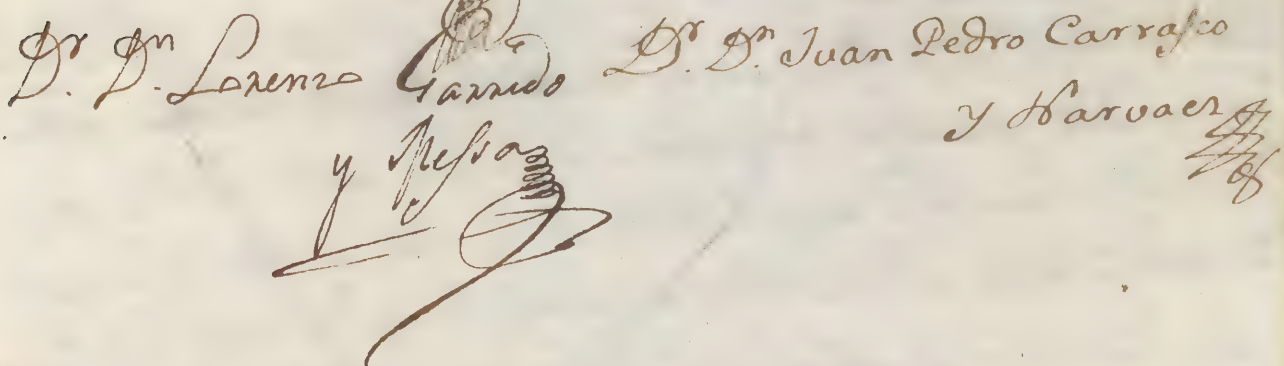 Dr. Dn. Lorenzo Garrido
y Messa
Dr. Dn. Juan Pedro Carrasco
y Narvaez